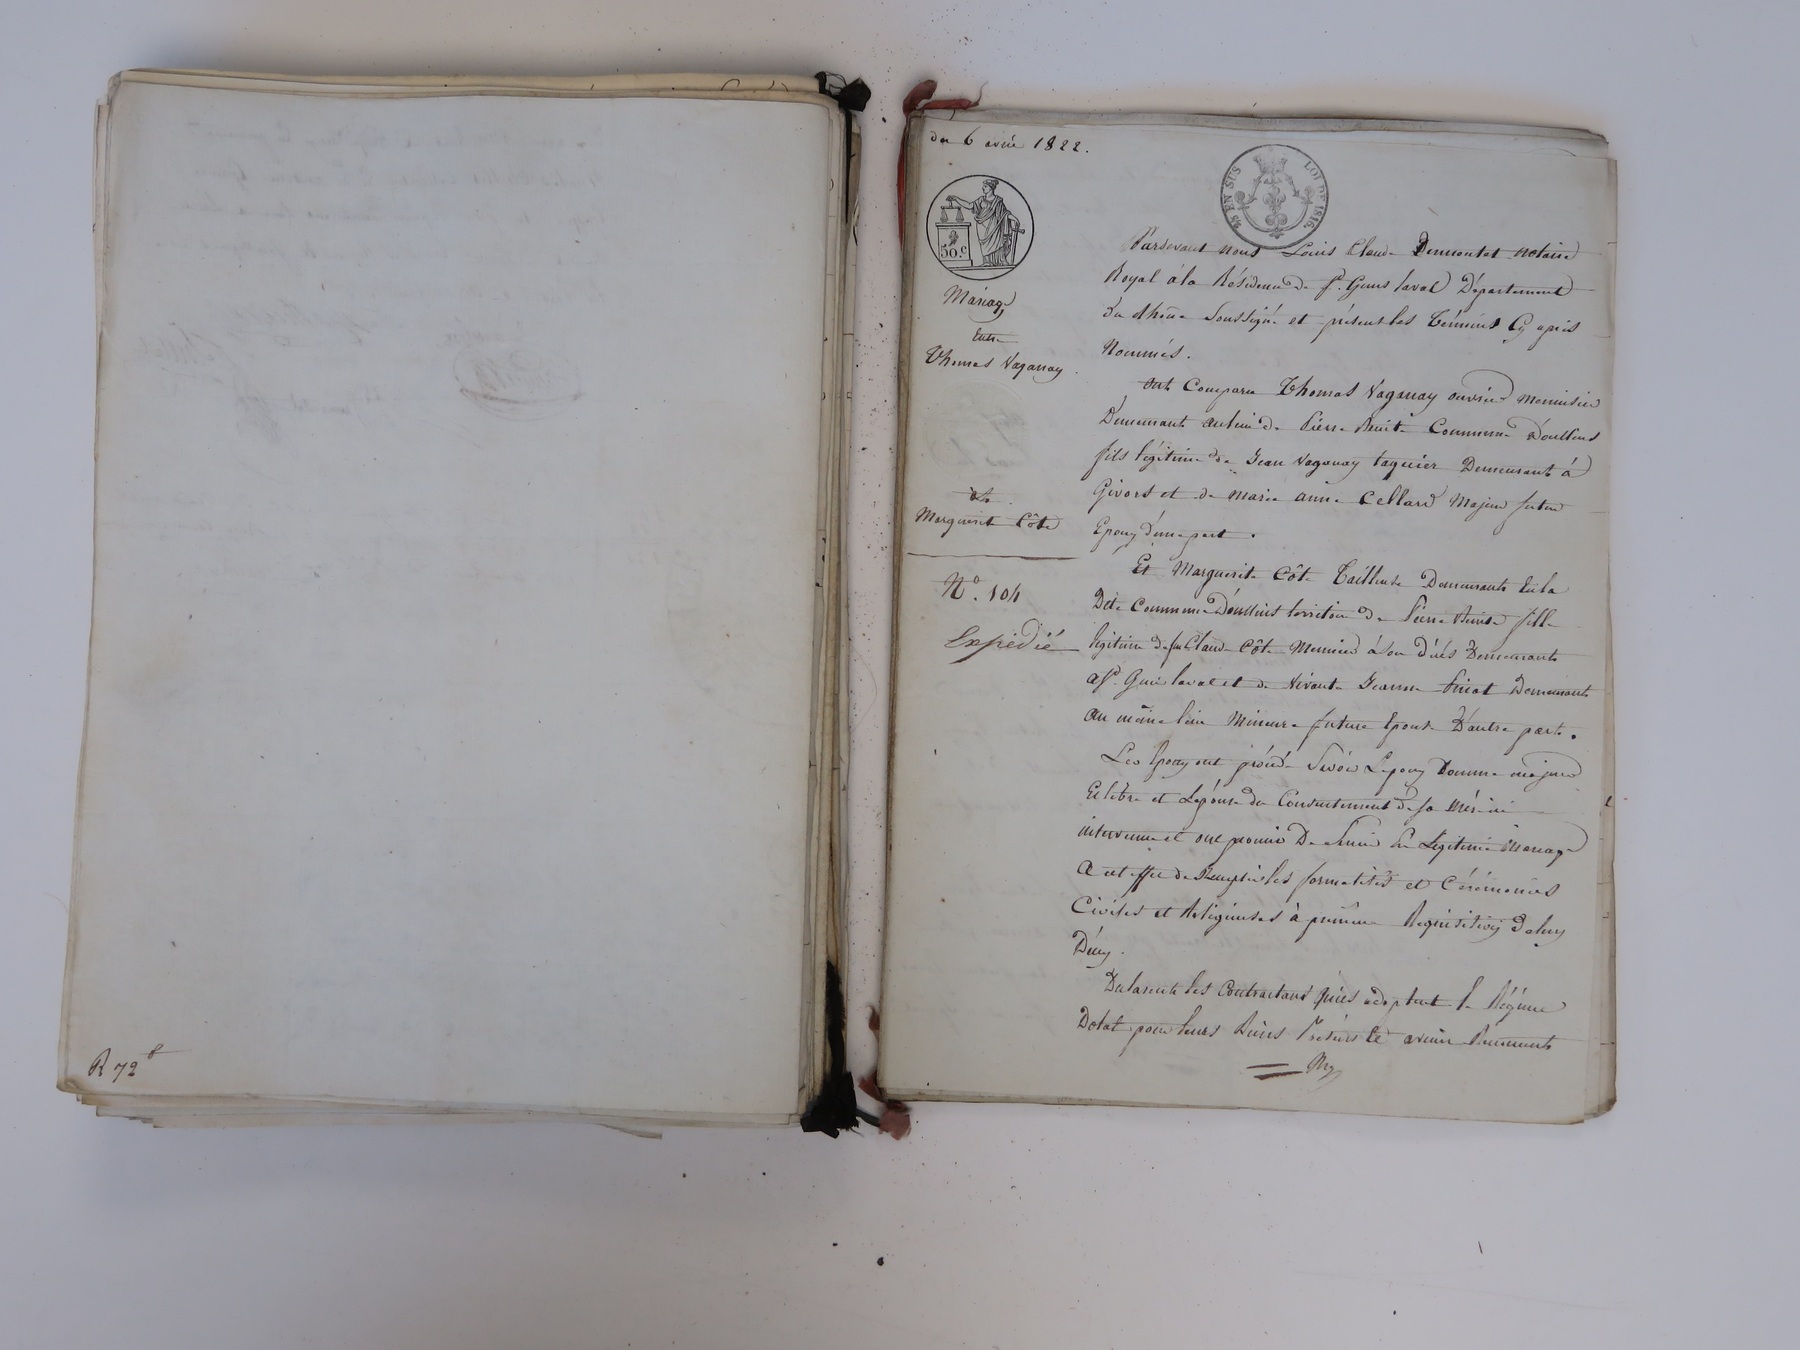 R 72
du 6 avril 1822.
25 EN SUS LOI DE 1816.
50.c
Mariage
Entre
Thomas Vaganay
et
Marguerite Côte
N.° 104
Expédié
Pardevant nous Louis Claude Demontet notaire
Royal à la Résidence de St. Genis laval Département
du Rhône Soussigné et présent les témoins Cy après
Nommés.
Ont Comparu Thomas Vaganay ouvrier Menuisier
Demeurant au lieu de Pierre Benite Commune D'oullins
fils légitime de Jean Vaganay Demeurant à
Givors et de marie anne Cellard Majeur futur
Epoux d'une part.
Et Marguerite Côte Tailleuse Demeurante En la
Dite Commune D'oullins territoire de Pierre Benite fille
légitime de feu Claude Côte Meunier à son décès Demeurant
a St. Genis laval et de vivante Jeanne Demeurant
au même lieu Mineure future Epouse D'autre part.
Les Epoux ont procédé Savoir L'epoux Comme majeur
Et libre et L'epouse du Consentement de sa Mère ici
intervenue et ont promis De S'unir En Légitime Mariage
A cet effet de Remplir les formalités et Cérémonies
Civiles et Religieuses à première Requisition de luy
D'eux.
Declarent les Contractans qu'ils adoptent le Régime
Dotal pour leurs Biens Présens et avenir